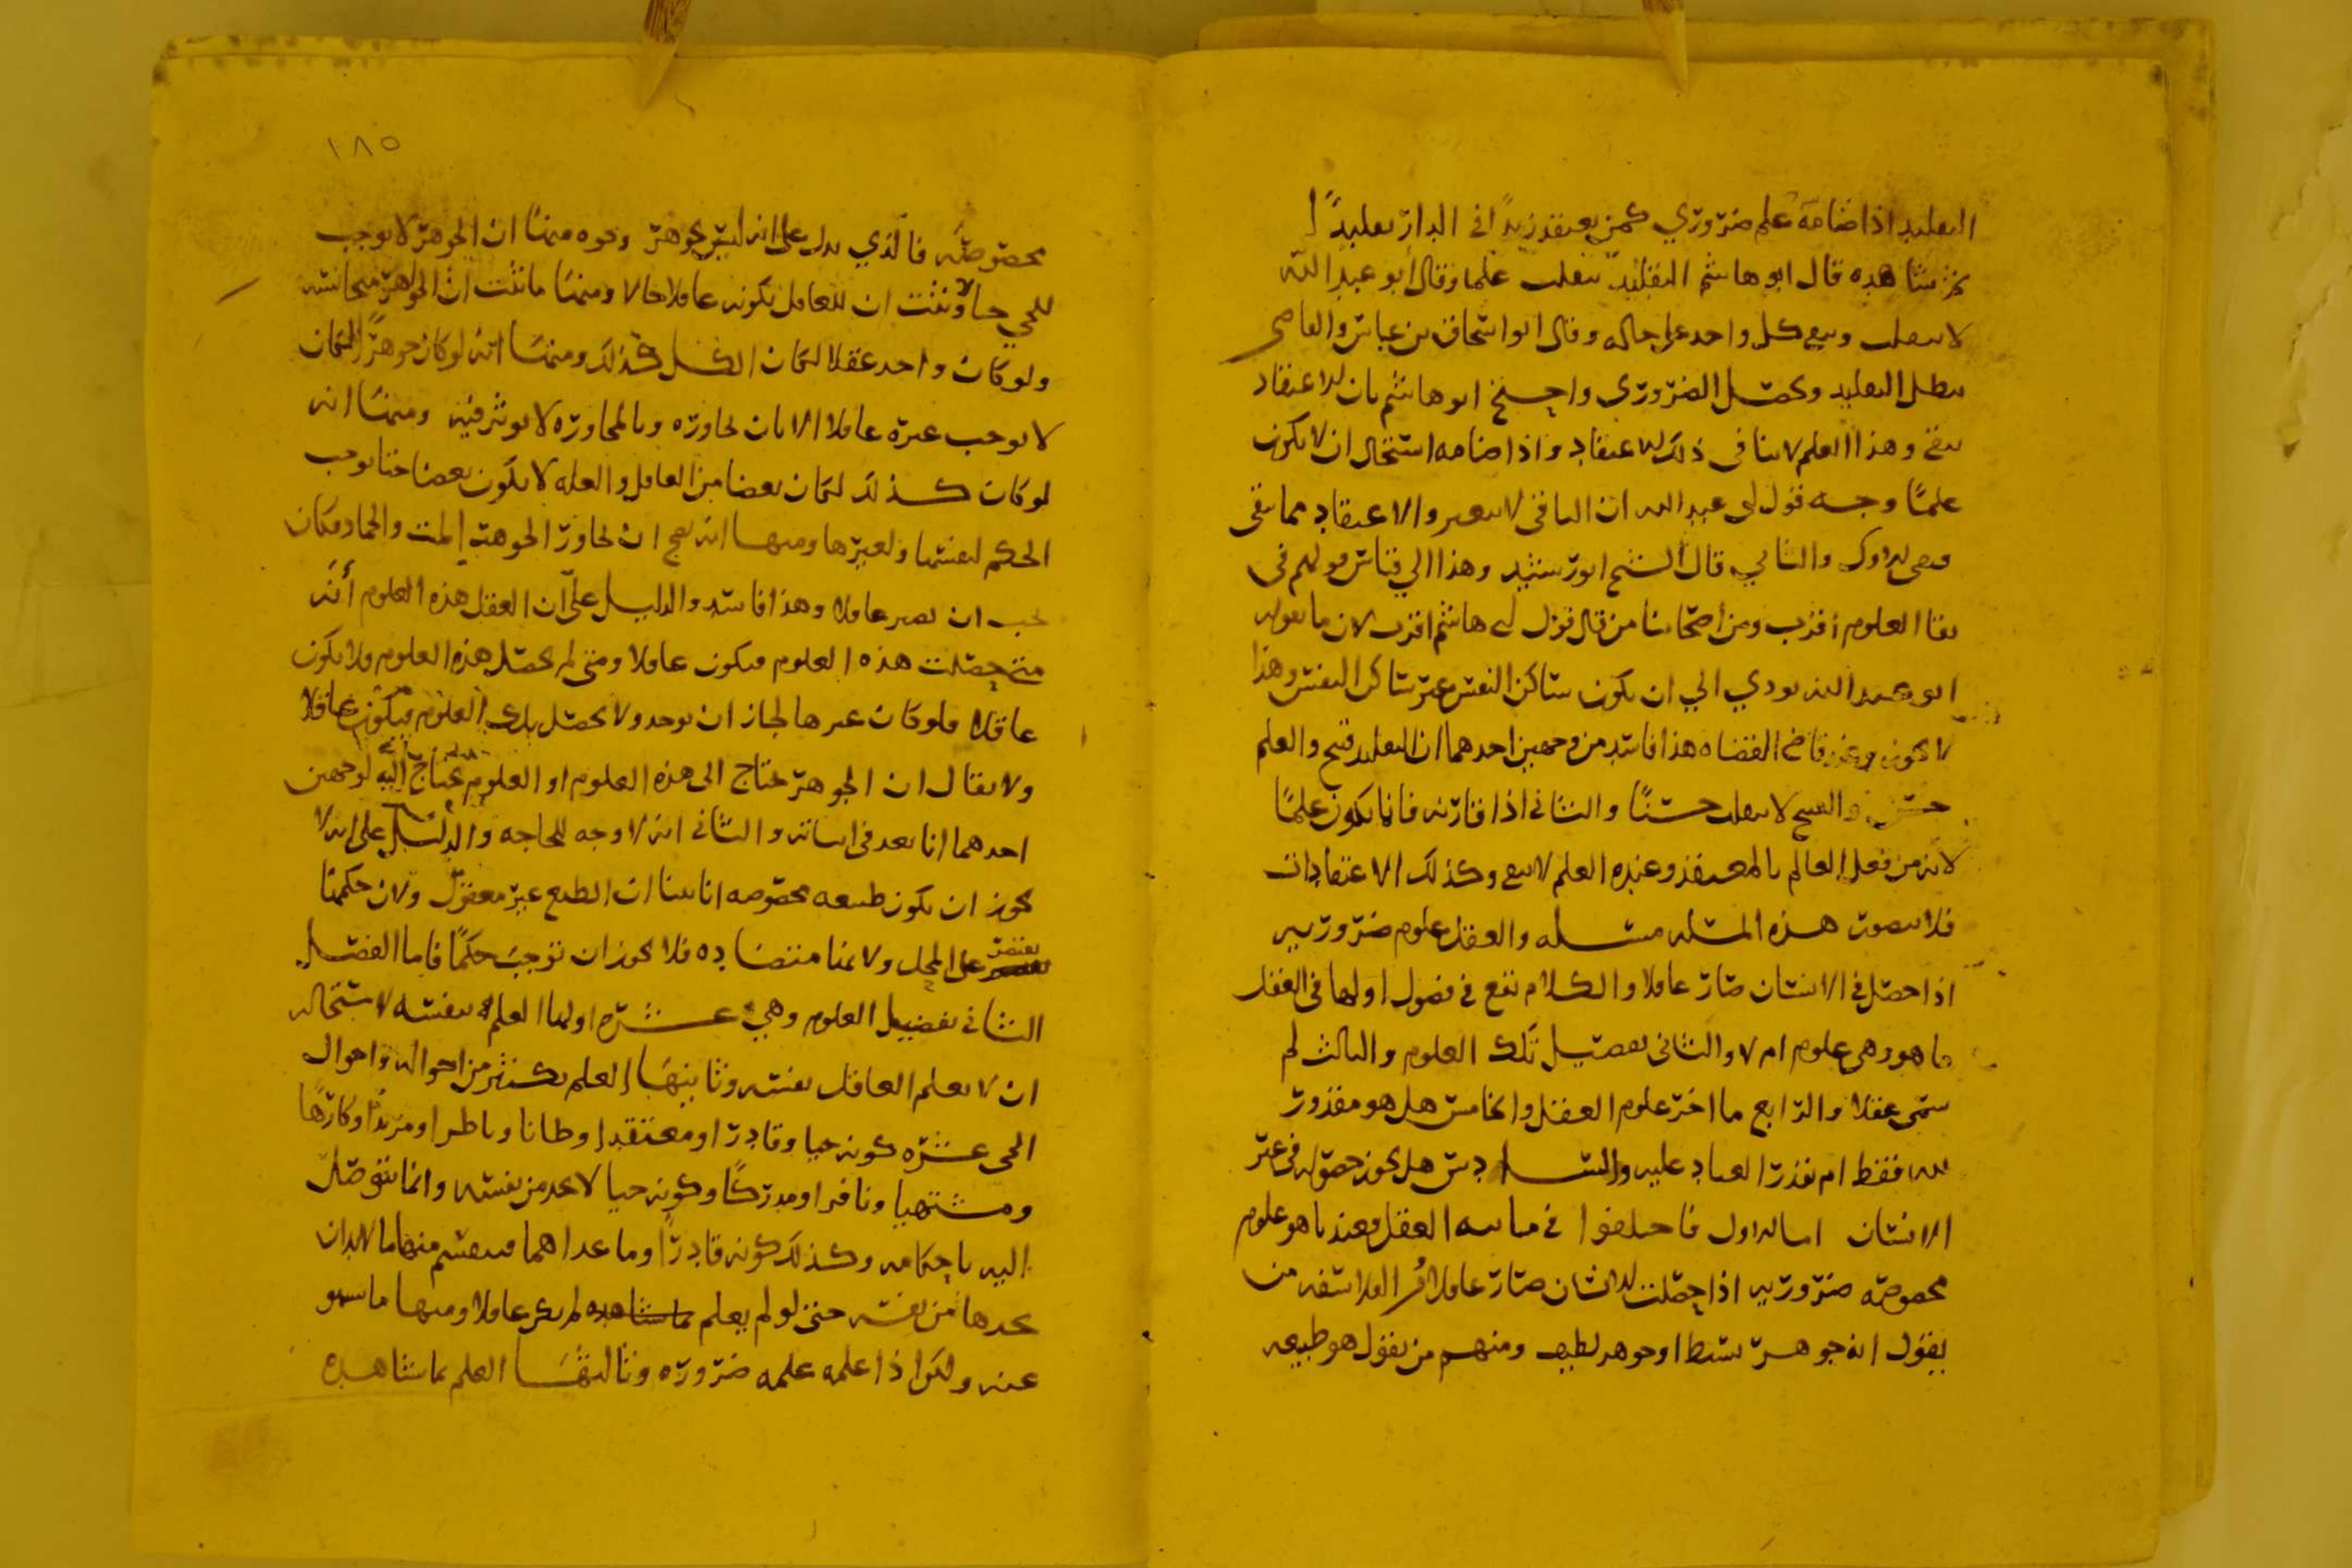 التقليد اذا ضامه علم ضروري كمن يعتقد زيدًا في الدار تقليدًا
ثم شاهده قال ابو هاشم التقليد ينقلب علما وقال أبو عبد الله
لا ينقلب ويبقى كل واحد على حاله وقال ابو اسحاق بن عياش والقاضي
يبطل التقليد ويحصل الضروري واحتج ابو هاشم بان الاعتقاد
يبقى وهذا العلم لا ينافى ذلك الاعتقاد واذا ضامه استحال ان لا يكون
علمًا وجه قول ابى عبد الله ان الباقى لا يتغير والاعتقاد مما يبقى
قال الشيخ ابو رشيد وهذا الي قياس قولهم فى
بقا العلوم أقرب ومن أصحابنا من قال قول ابى هاشم اقرب لان ما يقوله
ابو عبد الله يودي الي ان يكون ساكن النفس غير ساكن النفس وهذا
لا يجوز وعند قاضى القضاه هذا فاسد من وجهين احدهما ان التقليد قبيح والعلم
حسن والقبيح لا ينقلب حسنًا والثانى اذا قارنه فانما يكون علمًا
لانه من فعل العالم بالمعتقد وعنده العلم لا يبقى وكذلك الاعتقادات
فلا يتصور هذه المسئله مسئله والعقل علوم ضروريه
اذا حصل في الانسان صار عاقلا والكلام يقع في فصول اولها فى العقل
ما هو وهى علوم ام لا والثانى تفصيل تلك العلوم والثالث لم
سمى عقلا والرابع ما اخر علوم العقل والخامس هل هو مقدور
لله فقط ام يقدر العباد عليه والسادس هل يجوز حصوله فى غير
الانسان اما الاول فاختلفوا في مائيه العقل فعندنا هو علوم
مخصوصه ضروريه اذا حصلت للانسان صار عاقلا ومن الفلاسفه من
يقول انه جوهر بسيط او جوهر لطيف ومنهم من يقول هو طبيعه
١٨٥
مخصوصه فالذي يدل على انه ليس بجوهر وجوه منها ان الجوهر لا يوجب
للحي حالا وثبت ان للعاقل بكونه عاقلا حالا ومنها ما ثبت ان الجواهر متجانسه
ولو كان واحد عقلا لكان الكل كذلك ومنها انه لو كان جوهرًا لكان
لا يوجب غيره عاقلا الا بان يجاوره وبالمجاوره لا يوثر فيه ومنها انه
لو كان كذلك لكان بعضا من العاقل والعله لا يكون بعضا حتا يوجب
الحكم لنفسها ولغيرها ومنها انه يصح ان يجاور الجوهر الميت والجماد فكان
يجب ان يصير عاقلا وهذا فاسد والدليل على ان العقل هذه العلوم أنه
متى حصلت هذه العلوم فيكون عاقلا ومتى لم يحصل هذه العلوم فلا يكون
عاقلا فلو كان غيرها لجاز ان يوجد ولا يحصل بلك العلوم فيكون عاقلا
ولا يقال ان الجوهر يحتاج الى هذه العلوم او العلوم يحتاج اليه لوجهين
احدهما انا بعد في اثباته والثانى انه لا وجه للحاجه والدليل على انه لا
يجوز ان يكون طبيعه مخصوصه انا بينا ان الطبع غير معقول ولان حكمها
يقتصر على المحل ولانها متضاده فلا يجوز ان توجب حكمًا فاما الفصل
الثانى تفصيل العلوم وهي عشره اولها العلم بنفسه لاستحاله
ان لا يعلم العاقل نفسه وثانيها العلم بكثير من احواله واحوال
الحى عشره كونه حيا وقادرا ومعتقدا وظانا وناظرا ومريدًا وكارهًا
ومشتهيا ونافرا ومدركًا وكونه حيا لا يجد من نفسه وانما يتوصل
اليه باحكامه وكذلك كونه قادرًا وما عداهما فينقسم منها ما لابد ان
يجدها من نفسه حتى لو لم يعلم لم يكن عاقلا ومنها ما يسهو
عنه ولكن اذا علمه علمه ضروره وثالثها العلم بما شاهده